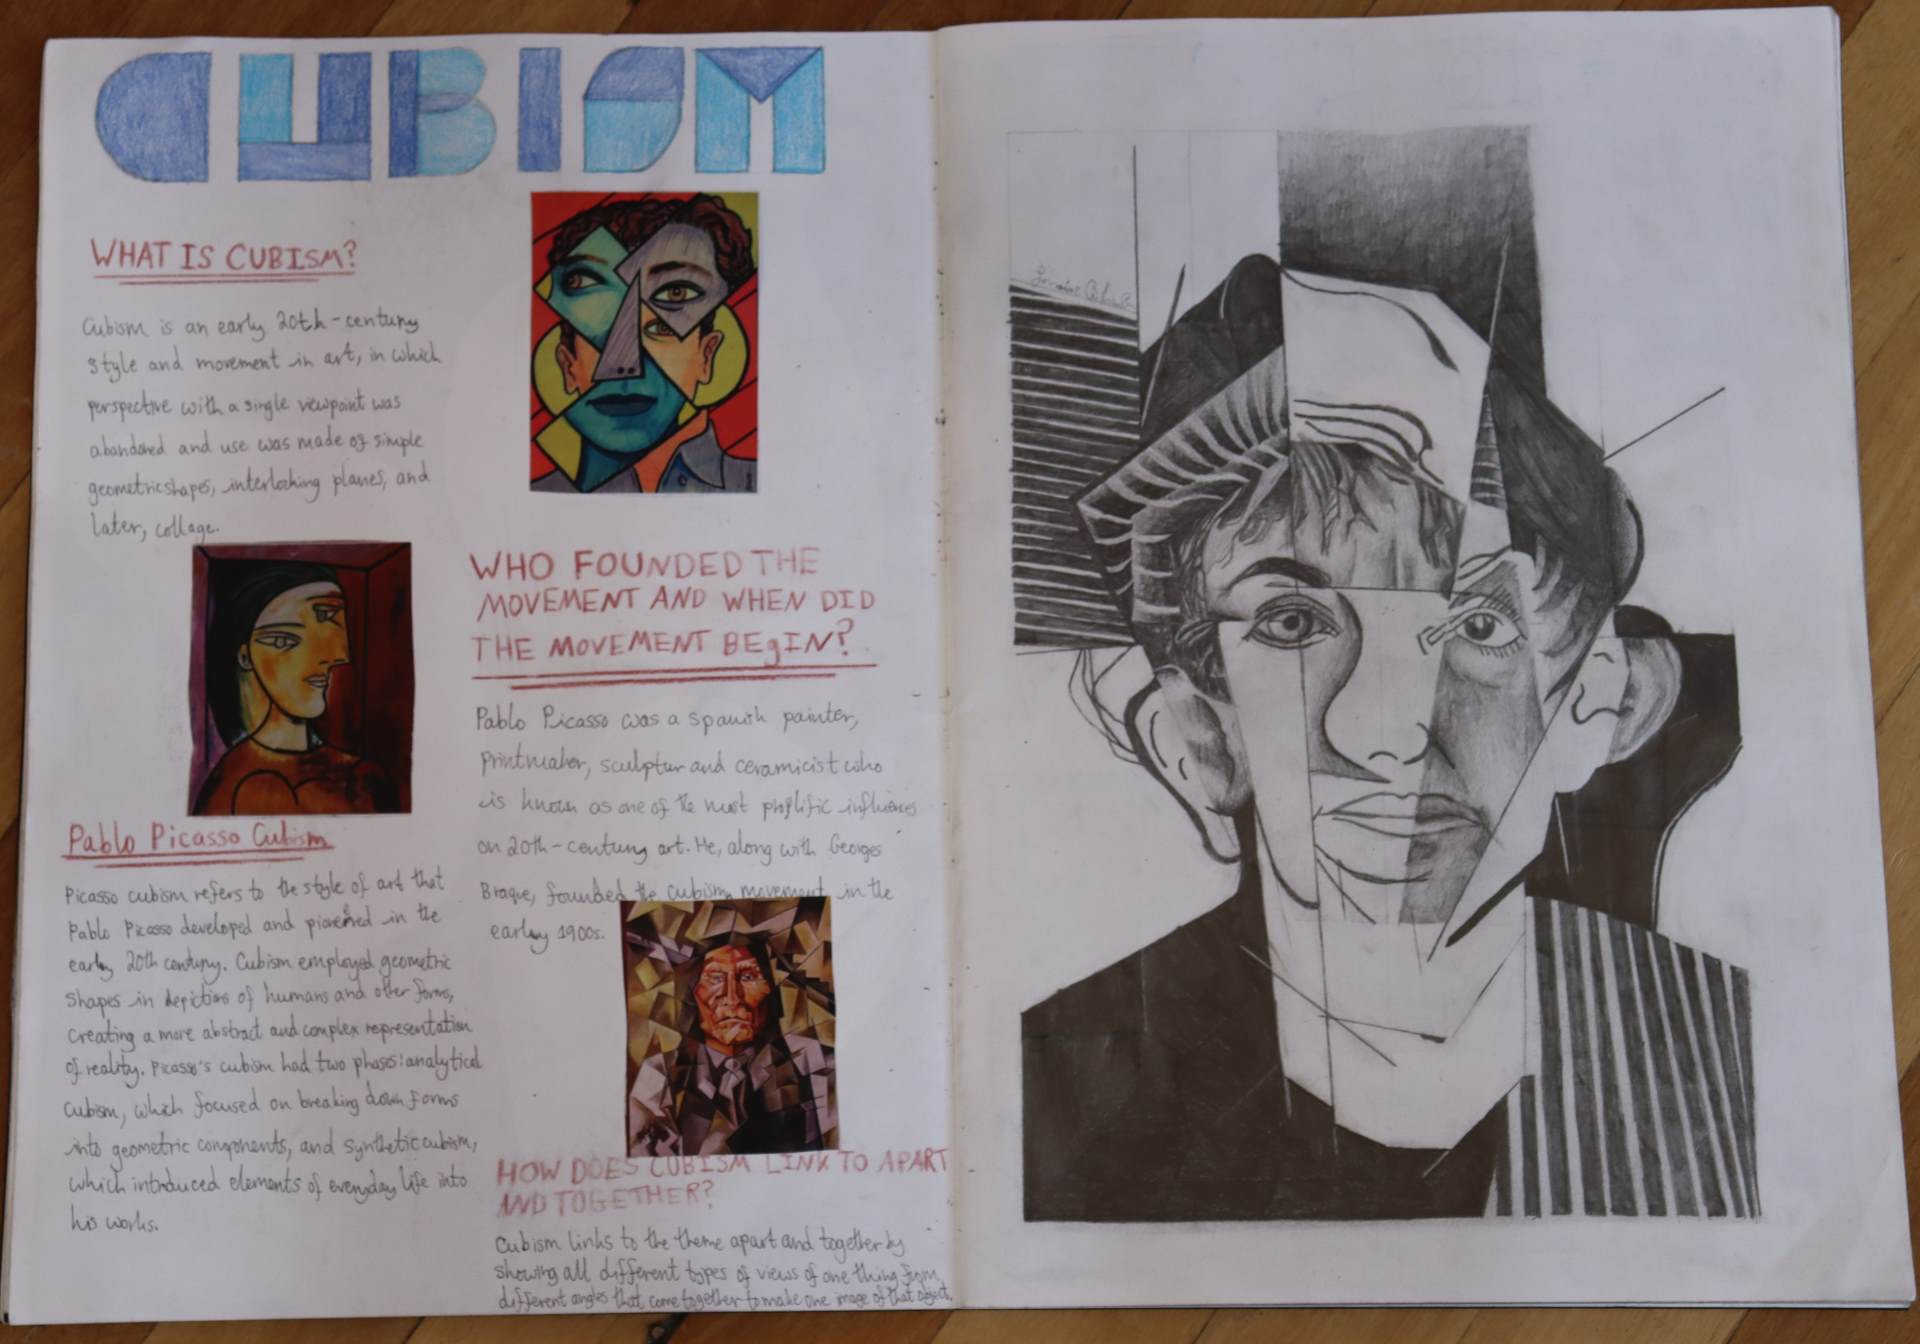 CUBISM
WHAT IS CUBISM?
Cubism is an early 20th-century
style and movement in art, in which
perspective with a single viewpoint was
abandoned and use was made of simple
geometric shapes, interlocking planes, and
later, collage.
Pablo Picasso Cubism
Picasso cubism refers to the style of art that
Pablo Picasso developed and pioneered in the
early 20th century. Cubism employed geometric
shapes in depictions of humans and other forms,
creating a more abstract and complex representation
of reality. Picasso's cubism had two phases: analytical
cubism, which focused on breaking down forms
into geometric components, and synthetic cubism,
which introduced elements of everyday life into
his works.
WHO FOUNDED THE
MOVEMENT AND WHEN DID
THE MOVEMENT BEgIN?
Pablo Picasso was a spanish painter,
printmaker, sculptur and ceramicist who
is known as one of the most prolific influences
on 20th-century art. He, along with Georges
Braque, founded the cubism movement in the
early 1900s.
HOW DOES CUBISM LINK TO APART
AND TOGETHER?
Cubism links to the theme apart and together by
showing all different types of views of one thing from
different angles that come together to make one image of that object.